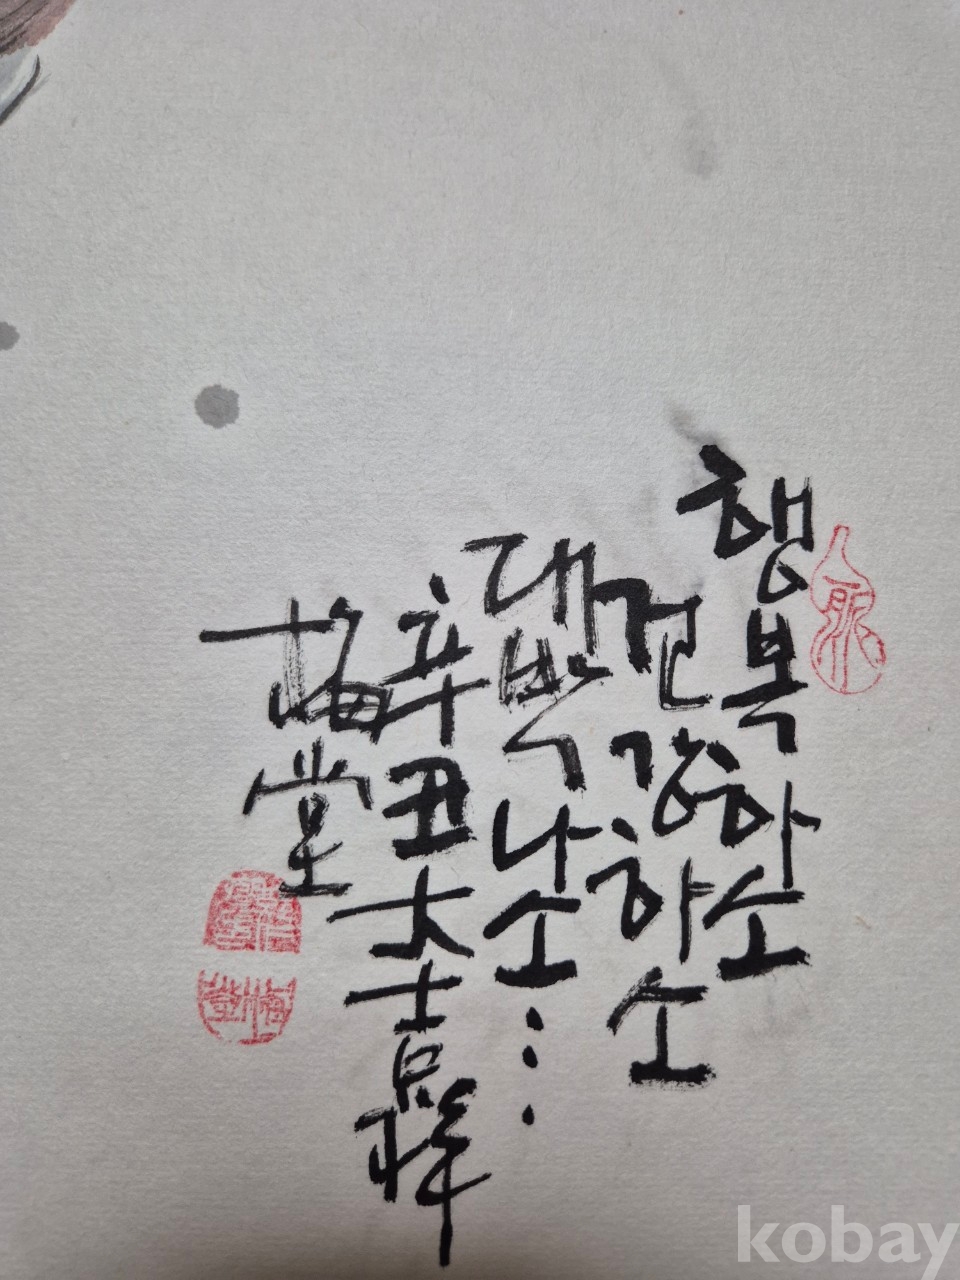 행복하소
건강하소
대박나소...
辛丑大吉祥
梅堂
kobay